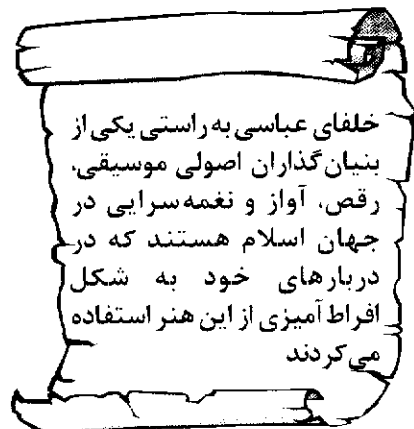 خلفای عباسی به راستی یکی از
بنیان گذاران اصولی موسیقی،
رقص، آواز و نغمه سرایی در
جهان اسلام هستند که در
دربارهای خود به شکل
افراط آمیزی از این هنر استفاده
می کردند